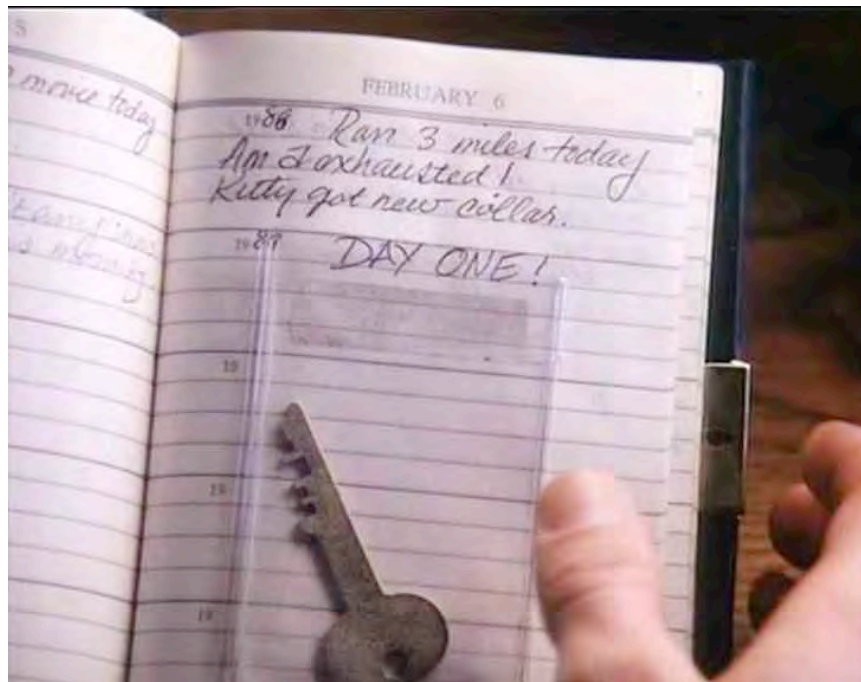 5
movie today
FEBRUARY 6
1986 Ran 3 miles today
Am I exhausted!
Kitty got new collar.
1987 DAY ONE!
19
19
19